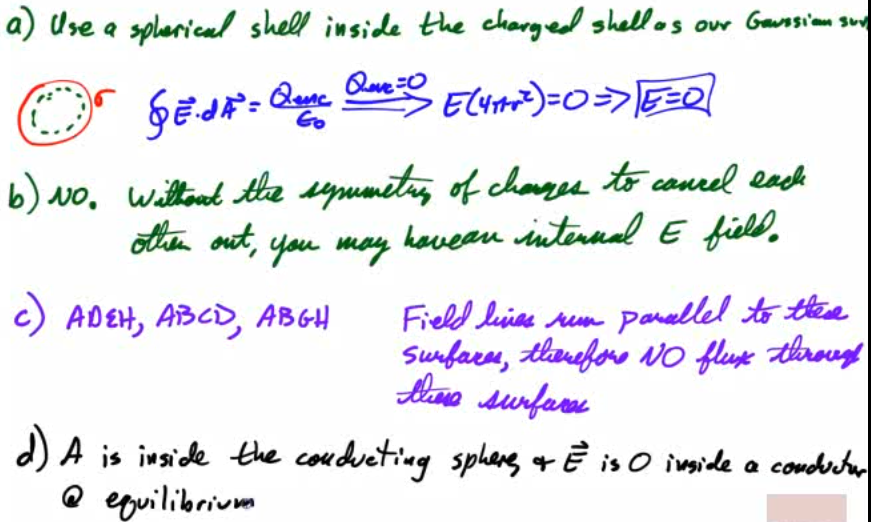 a) Use a spherical shell inside the charged shell as our Gaussian sur
σ ∮E⃗·dA⃗ = Qenc/ε₀ Qenc=0 ⟹ E(4πr²)=0 => E=0
b) NO. Without the symmetry of charges to cancel each
other out, you may have an internal E field.
c) ADEH, ABCD, ABGH Field lines run parallel to these
surfaces, therefore NO flux through
these surfaces
d) A is inside the conducting sphere, & E⃗ is 0 inside a conductor
@ equilibrium